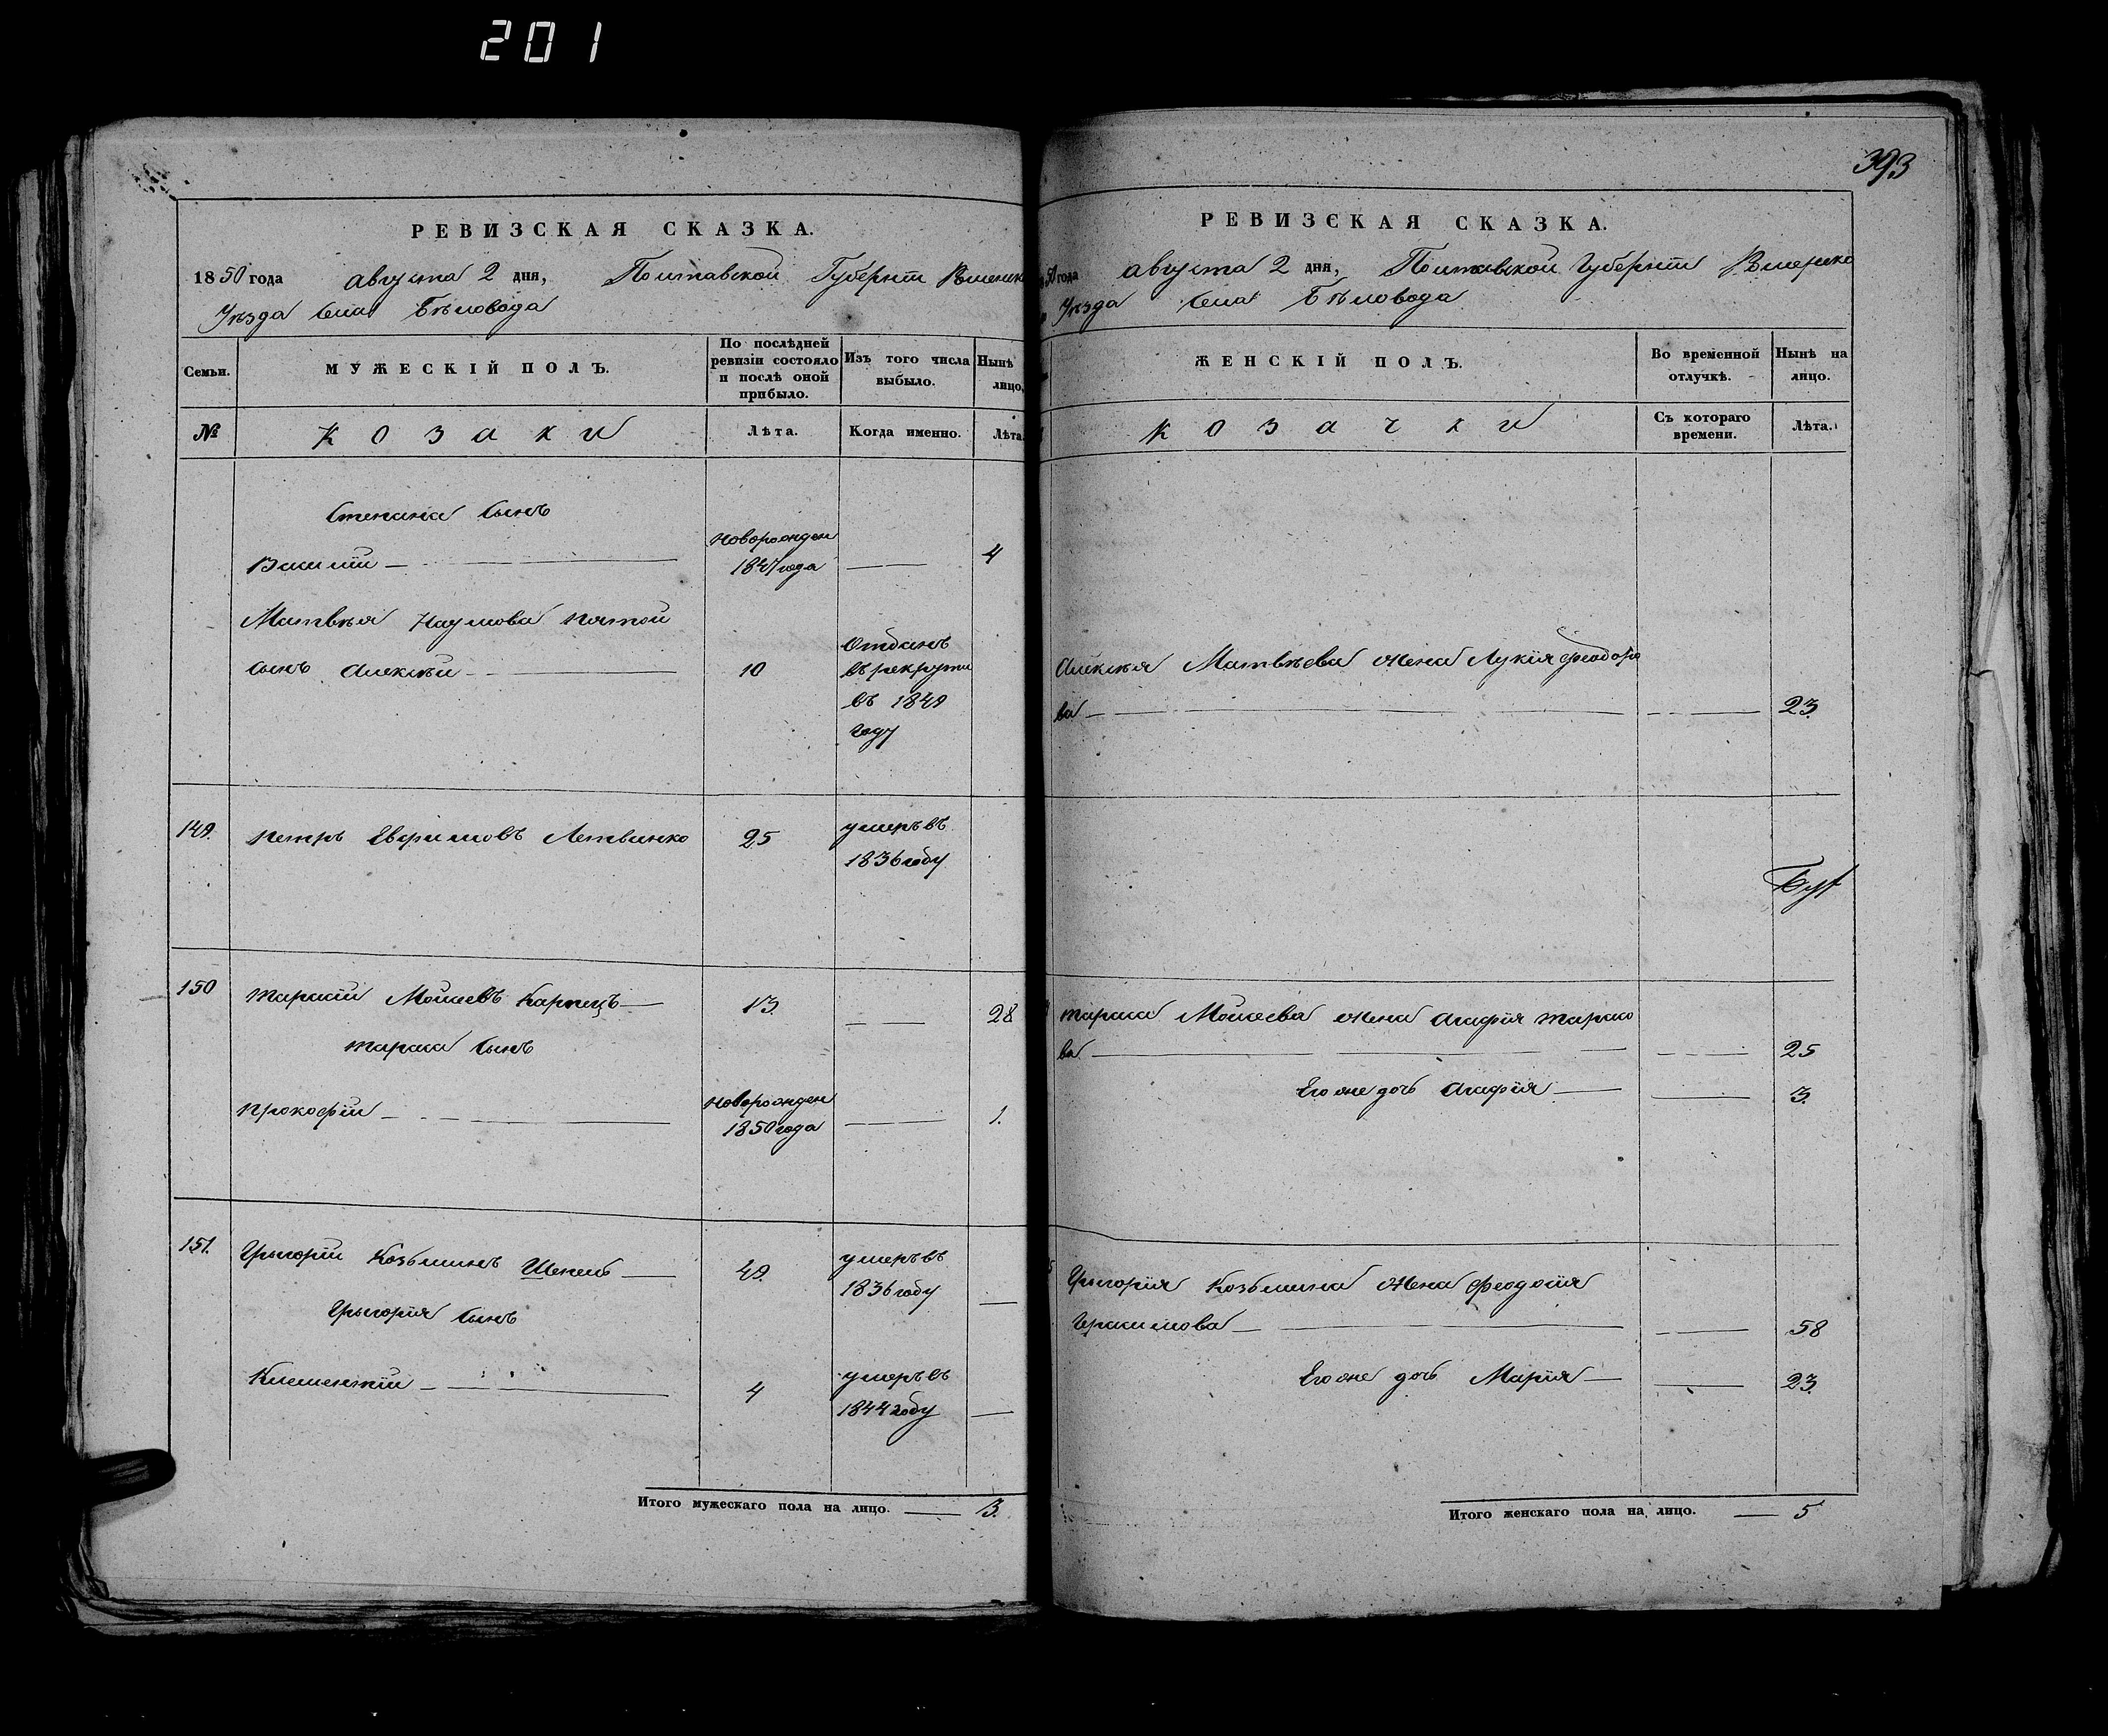 201
РЕВИЗСКАЯ СКАЗКА.
1850 года августа 2 дня, Полтавской Губерніи Роменск
Уѣзда Села Бѣловода
Семьи.
МУЖЕСКІЙ ПОЛЪ.
По послѣдней ревизіи состояло и послѣ оной прибыло.
Изъ того числа выбыло.
Нынѣ лицо,
№
Козаки
Лѣта.
Когда именно.
Лѣта
Степана Сынъ
Василій
новорожден
1847 года
4
Матвѣя Наумова пятой
сынъ Алексѣй
10
Отданъ
въ рекруты
въ 1849
году
149.
Петръ Евфимовъ Летвинко
25
умеръ въ
1836 году
150
Тарасій Моисеевъ Карпецъ
13.
28
Тараса Сынъ
Прокофій
новорожден
1850 года
1.
151.
Григорій Козьминъ Шепель
49.
умеръ въ
1836 году
Григорія Сынъ
Клементій
4
умеръ въ
1844 году
Итого мужескаго пола на лицо. 3.
393
РЕВИЗСКАЯ СКАЗКА.
50 года августа 2 дня, Полтавской Губерніи Роменско
Уѣзда Села Бѣловода
ЖЕНСКІЙ ПОЛЪ.
Во временной отлучкѣ.
Нынѣ на лицо.
Козачки
Съ котораго времени.
Лѣта.
Алексѣя Матвѣева жена Лукія Феодоро
ва
23.
Тараса Моисеева жена Агафія Тарасо
ва
25
Его же дочь Агафія
3.
Григорія Козьмина жена Феодосія
Герасимова
58
Его же дочь Марія
23.
Итого женскаго пола на лицо. 5